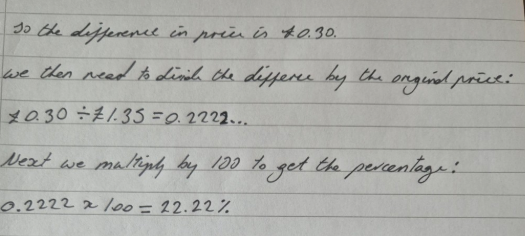 So the difference in price is £0.30.
we then need to divide the differece by the original price:
£0.30 ÷ £1.35 = 0.2222...
Next we multiply by 100 to get the percentage:
0.2222 x 100 = 22.22%